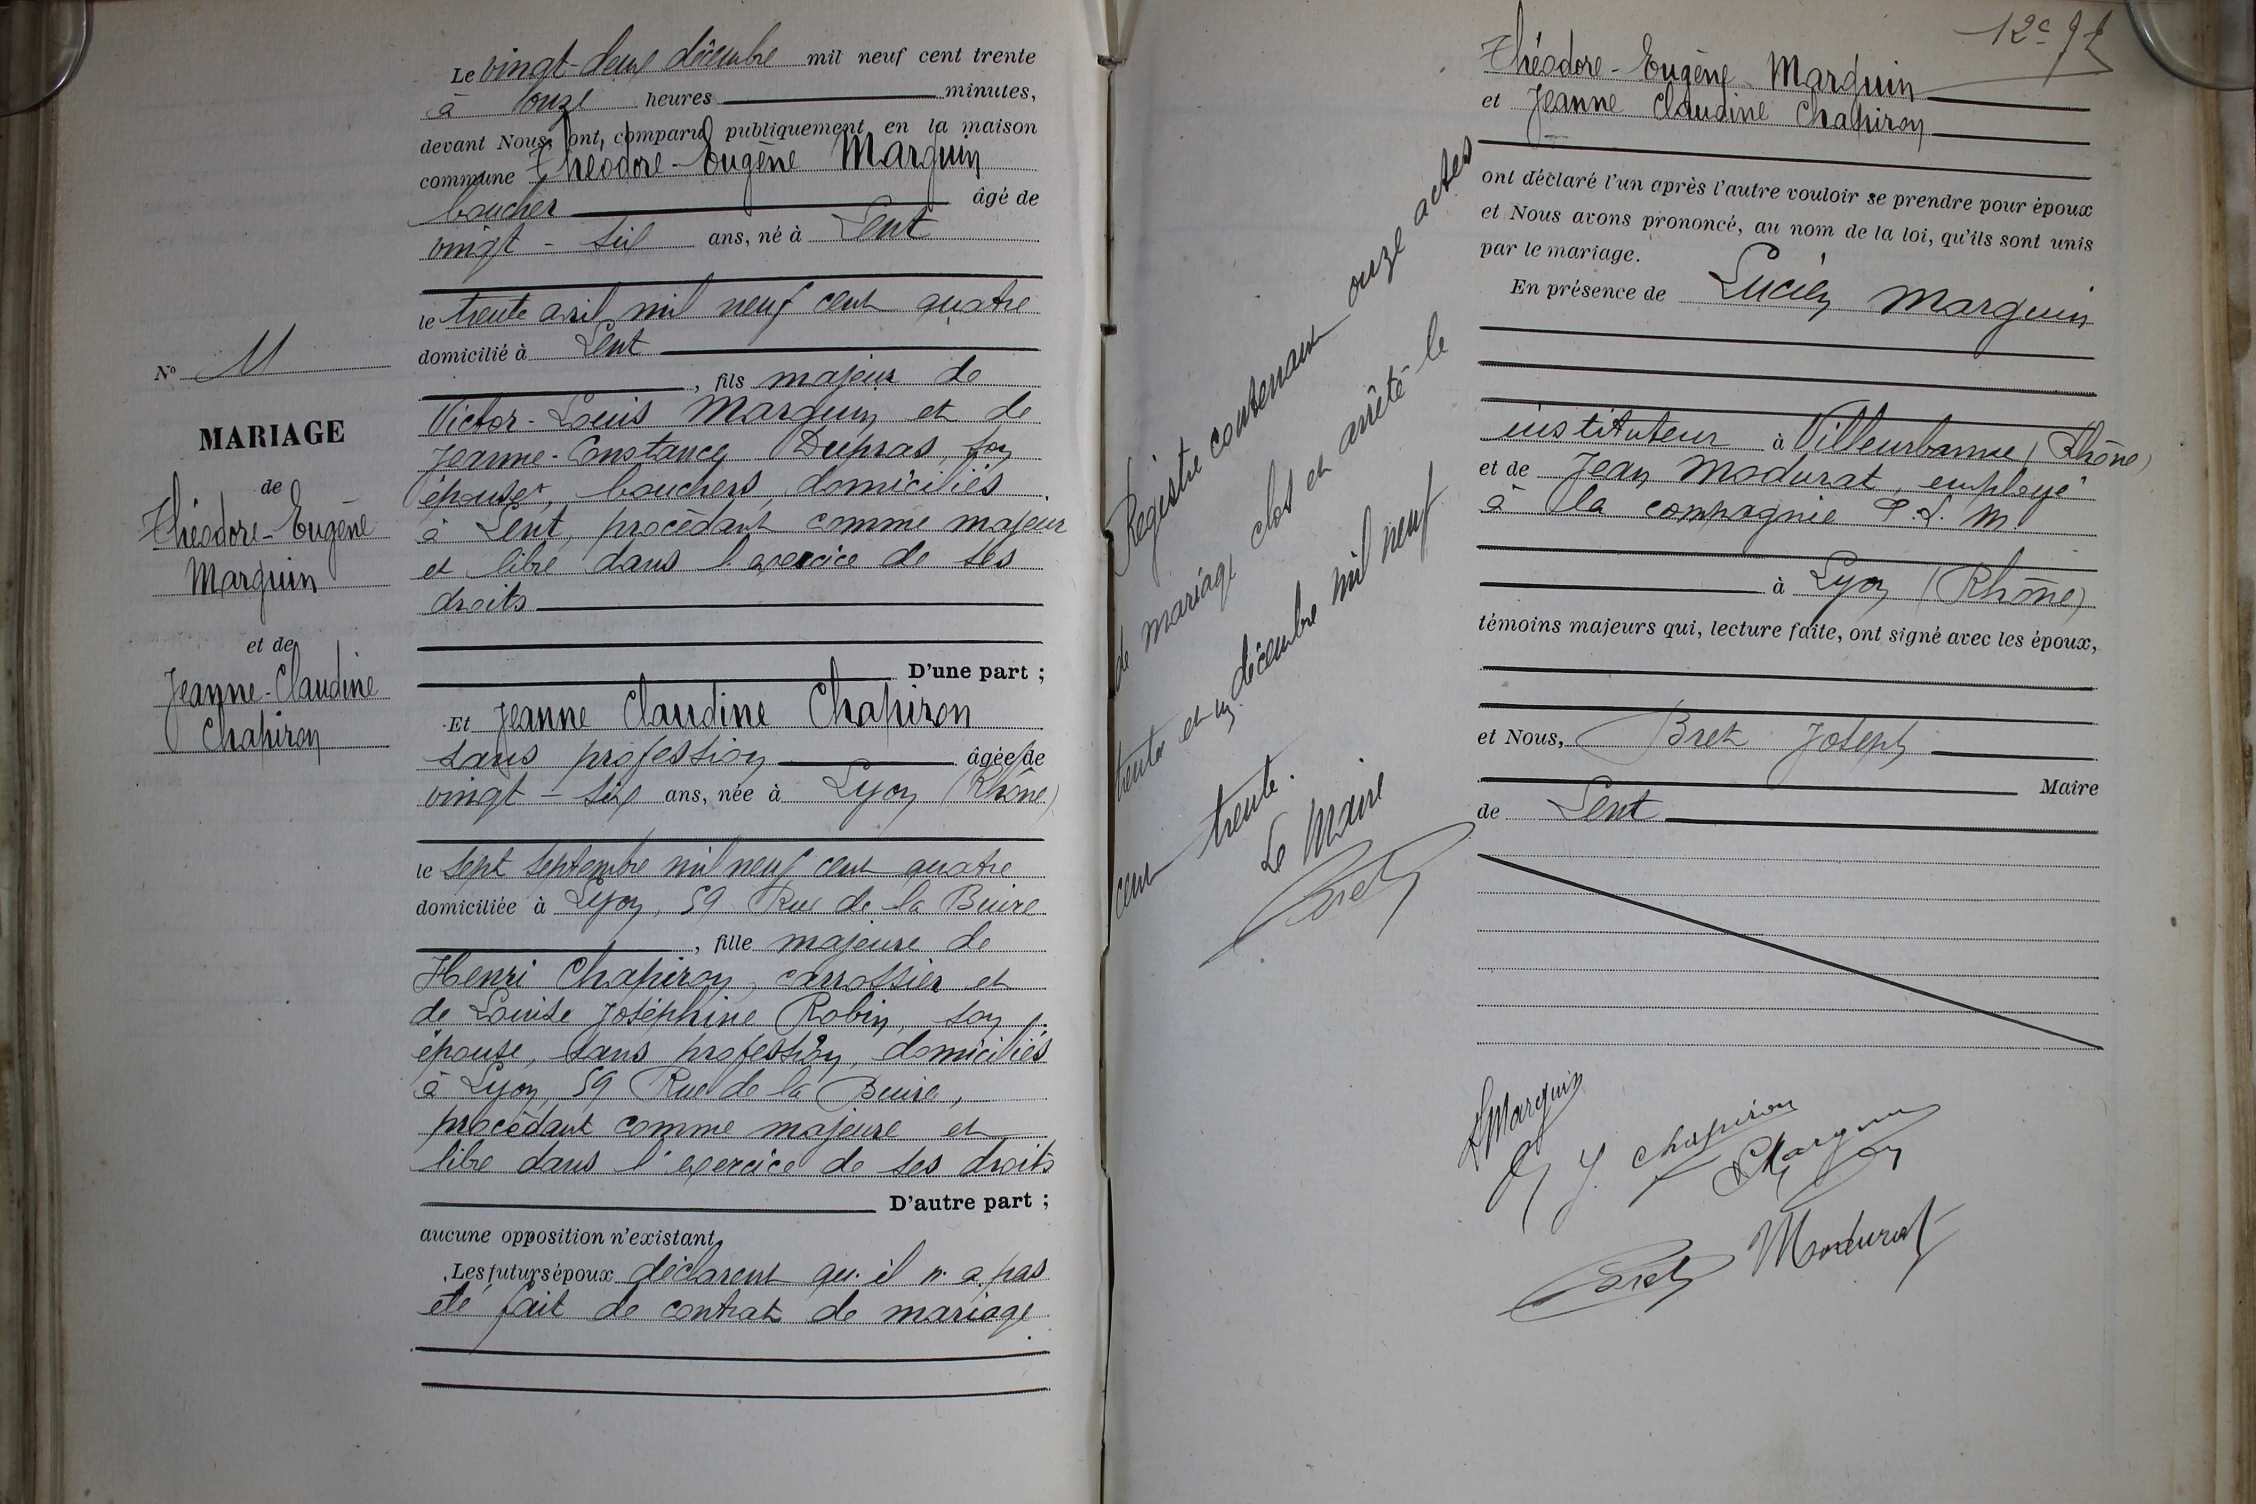 Le vingt-deux décembre mil neuf cent trente
à onze heures minutes,
devant Nous, ont comparu publiquement en la maison
commune Théodore-Eugène Marguin
boucher âgé de
vingt-six ans, né à Lent
le trente avril mil neuf cent quatre
domicilié à Lent
, fils majeur de
Victor-Louis Marguin et de
Jeanne-Constance Dupras, son
épouse, bouchers, domiciliés
à Lent, procédant comme majeur
et libre dans l'exercice de ses
droits
D'une part ;
Et Jeanne Claudine Chapiron
sans profession âgée de
vingt-six ans, née à Lyon (Rhône)
le sept septembre mil neuf cent quatre
domiciliée à Lyon, 59 Rue de la Buire
, fille majeure de
Henri Chapiron, carrossier et
de Louise Joséphine Robin, son
épouse, sans profession, domiciliés
à Lyon, 59 Rue de la Buire,
procédant comme majeure et
libre dans l'exercice de ses droits
D'autre part ;
aucune opposition n'existant
Les futurs époux déclarent qu'il n'a pas
été fait de contrat de mariage
N° 11
MARIAGE
de
Théodore-Eugène
Marguin
et de
Jeanne-Claudine
Chapiron
Registre contenant onze actes
de mariage clos et arrêté le
trente et un décembre mil neuf
cent trente.
Le Maire
Bret
12e
Théodore-Eugène Marguin
et Jeanne Claudine Chapiron
ont déclaré l'un après l'autre vouloir se prendre pour époux
et Nous avons prononcé, au nom de la loi, qu'ils sont unis
par le mariage.
En présence de Lucien Marguin
instituteur à Villeurbanne (Rhône)
et de Jean Modurat, employé
à la compagnie P.L.M.
à Lyon (Rhône)
témoins majeurs qui, lecture faite, ont signé avec les époux,
et Nous, Bret Joseph
Maire
de Lent
Marguin
J. Chapiron
Marguin
Bret
Modurat